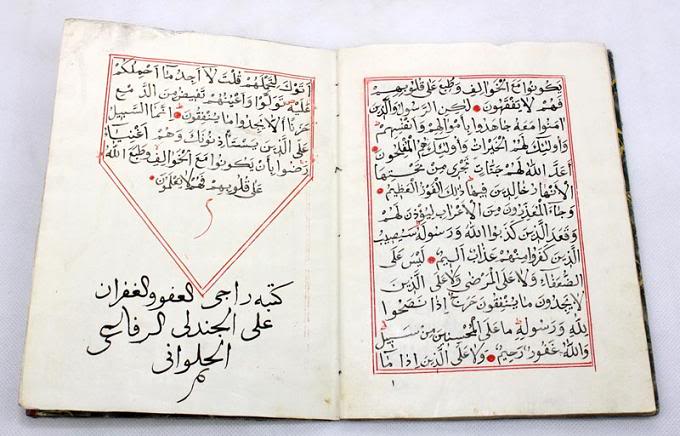 يكونوا مع الخوالف وطبع على قلوبهم
فهم لا يفقهون لكن الرسول والذين
امنوا معه جاهدوا بأموالهم وانفسهم
وأولئك لهم الخيرات وأولئك هم المفلحون
أعد الله لهم جنات تجري من تحتها
الأنهار خالدين فيها ذلك الفوز العظيم
وجاء المعذرون من الأعراب ليؤذن لهم
وقعد الذين كذبوا الله ورسوله سيصيب
الذين كفروا منهم عذاب أليم ليس على
الضعفاء ولا على المرضى ولا على الذين
لا يجدون ما ينفقون حرج إذا نصحوا
لله ورسوله ما على المحسنين من سبيل
والله غفور رحيم ولا على الذين إذا ما
١
أتوك لتحملهم قلت لا أجد ما أحملكم
عليه تولوا وأعينهم تفيض من الدمع
حزنا ألا يجدوا ما ينفقون إنما السبيل
على الذين يستأذنونك وهم أغنياء
رضوا بأن يكونوا مع الخوالف وطبع الله
على قلوبهم فهم لا يعلمون
كتبه راجي العفو والغفران
علي الجندلي الرفاعي
الحلواني